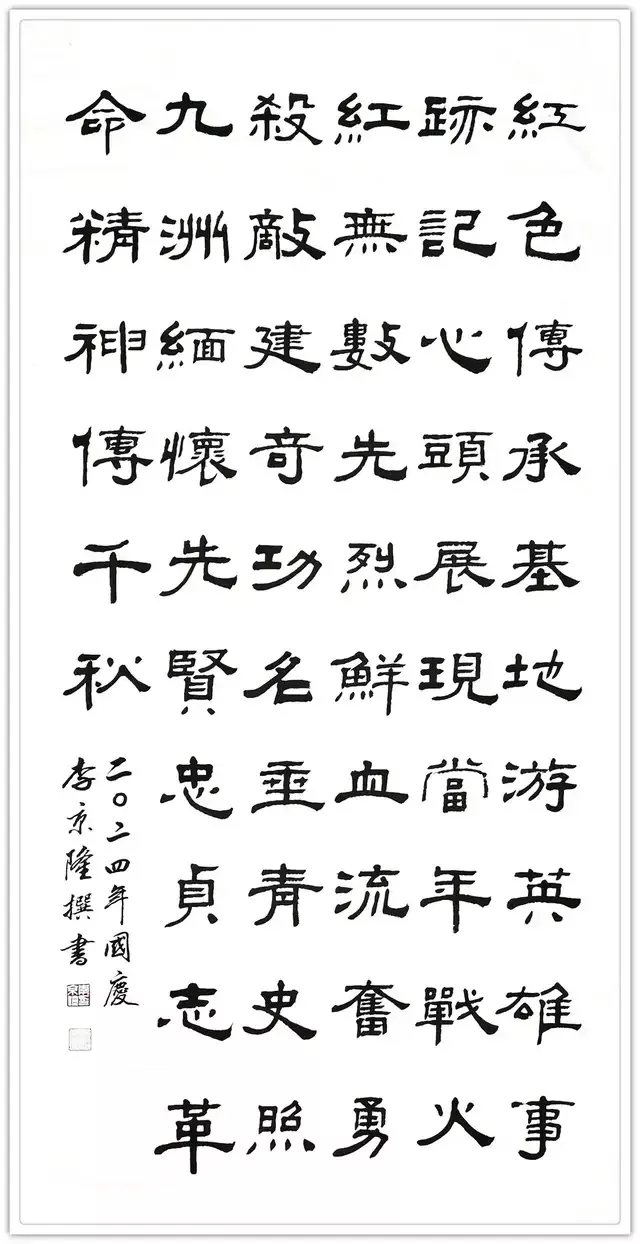 紅色傳承基地游英雄事
跡記心頭展現當年戰火
紅無數先烈鮮血流奮勇
殺敵建奇功名垂青史照
九洲緬懷先賢忠貞志革
命精神傳千秋
二〇二四年國慶
李京隆撰書